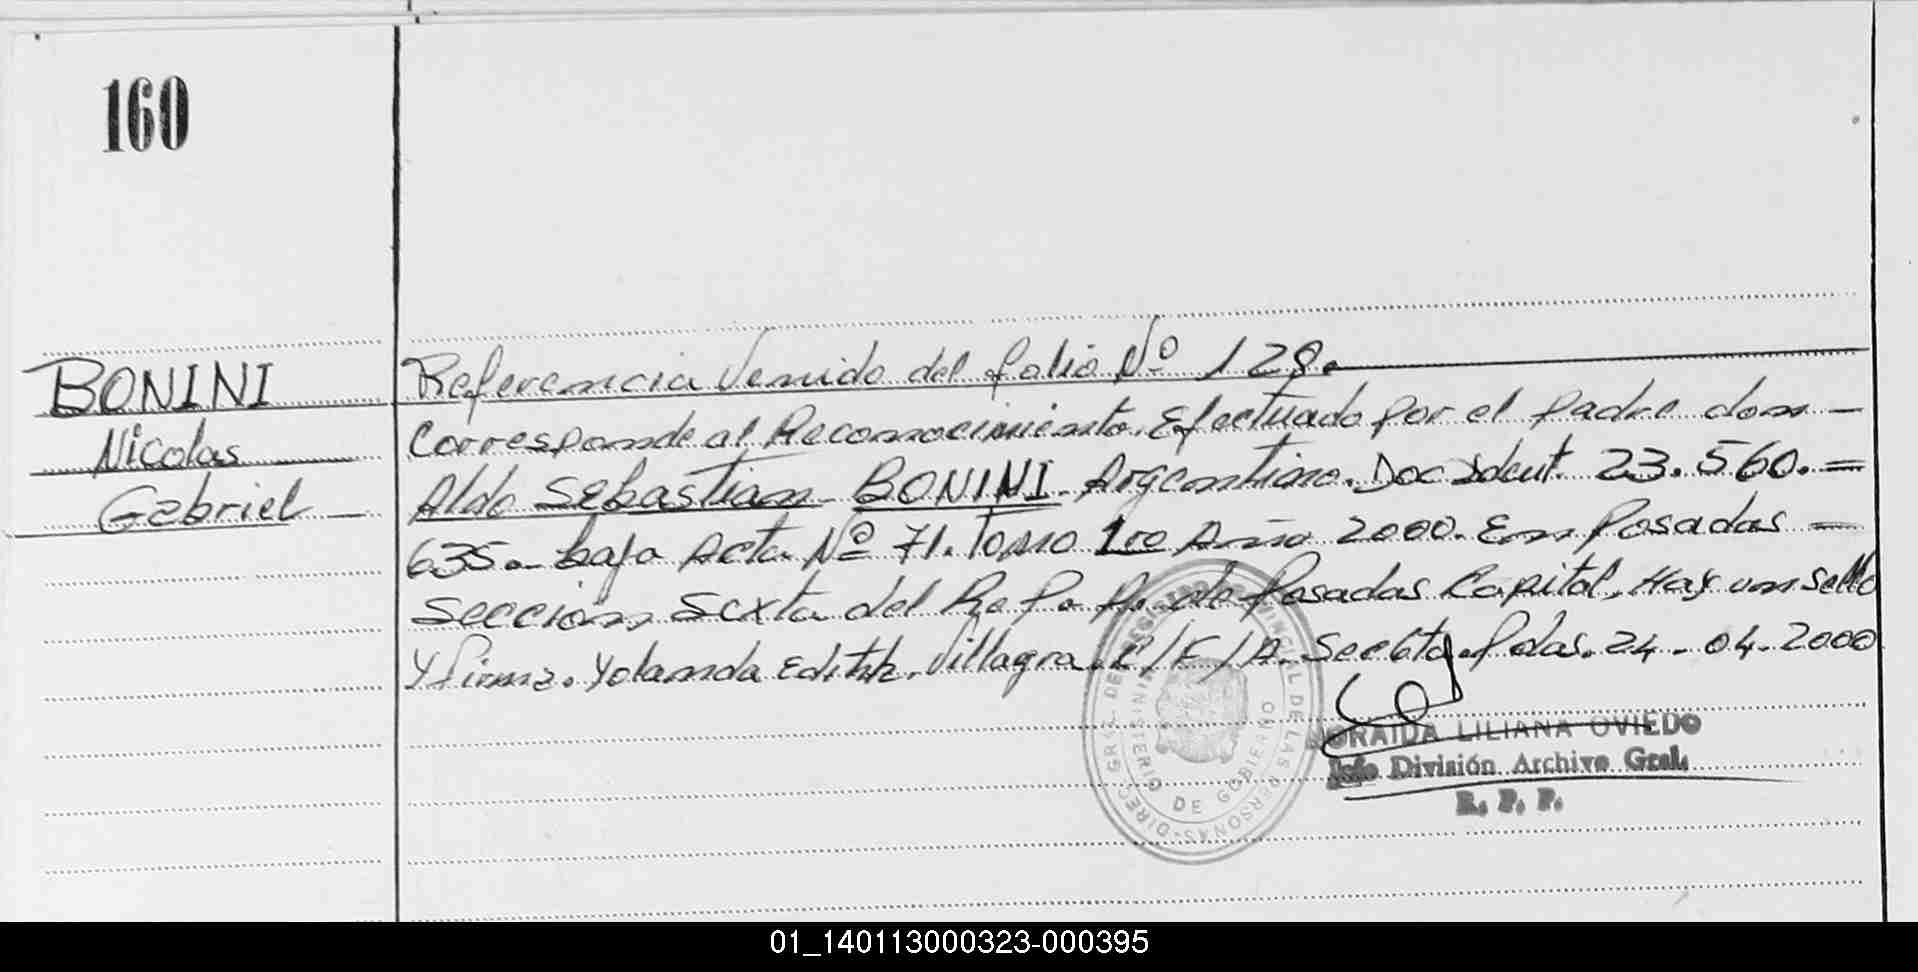 160
BONINI
Nicolas
Gabriel
Referencia Venido del folio Nº 128.
Corresponde al Reconocimiento. Efectuado por el padre don -
Aldo Sebastian - BONINI. Argentino. Doc Ident. 23.560.=
635.- bajo Acta Nº 71. Tomo 1ro Año 2000. En Posadas -
Sección Sexta del R. P. P. de Posadas Capital, Hay un sello
Y firma. Yolanda Edith. Villagra. E/F/A. Sec 6ta. Pdas. 24-04-2000
DIREC. GRAL. DEL REGISTRO PROVINCIAL DE LAS PERSONAS
MINISTERIO DE GOBIERNO
ORAIDA LILIANA OVIEDO
Jefe División Archivo Gral.
R. P. P.
01_140113000323-000395